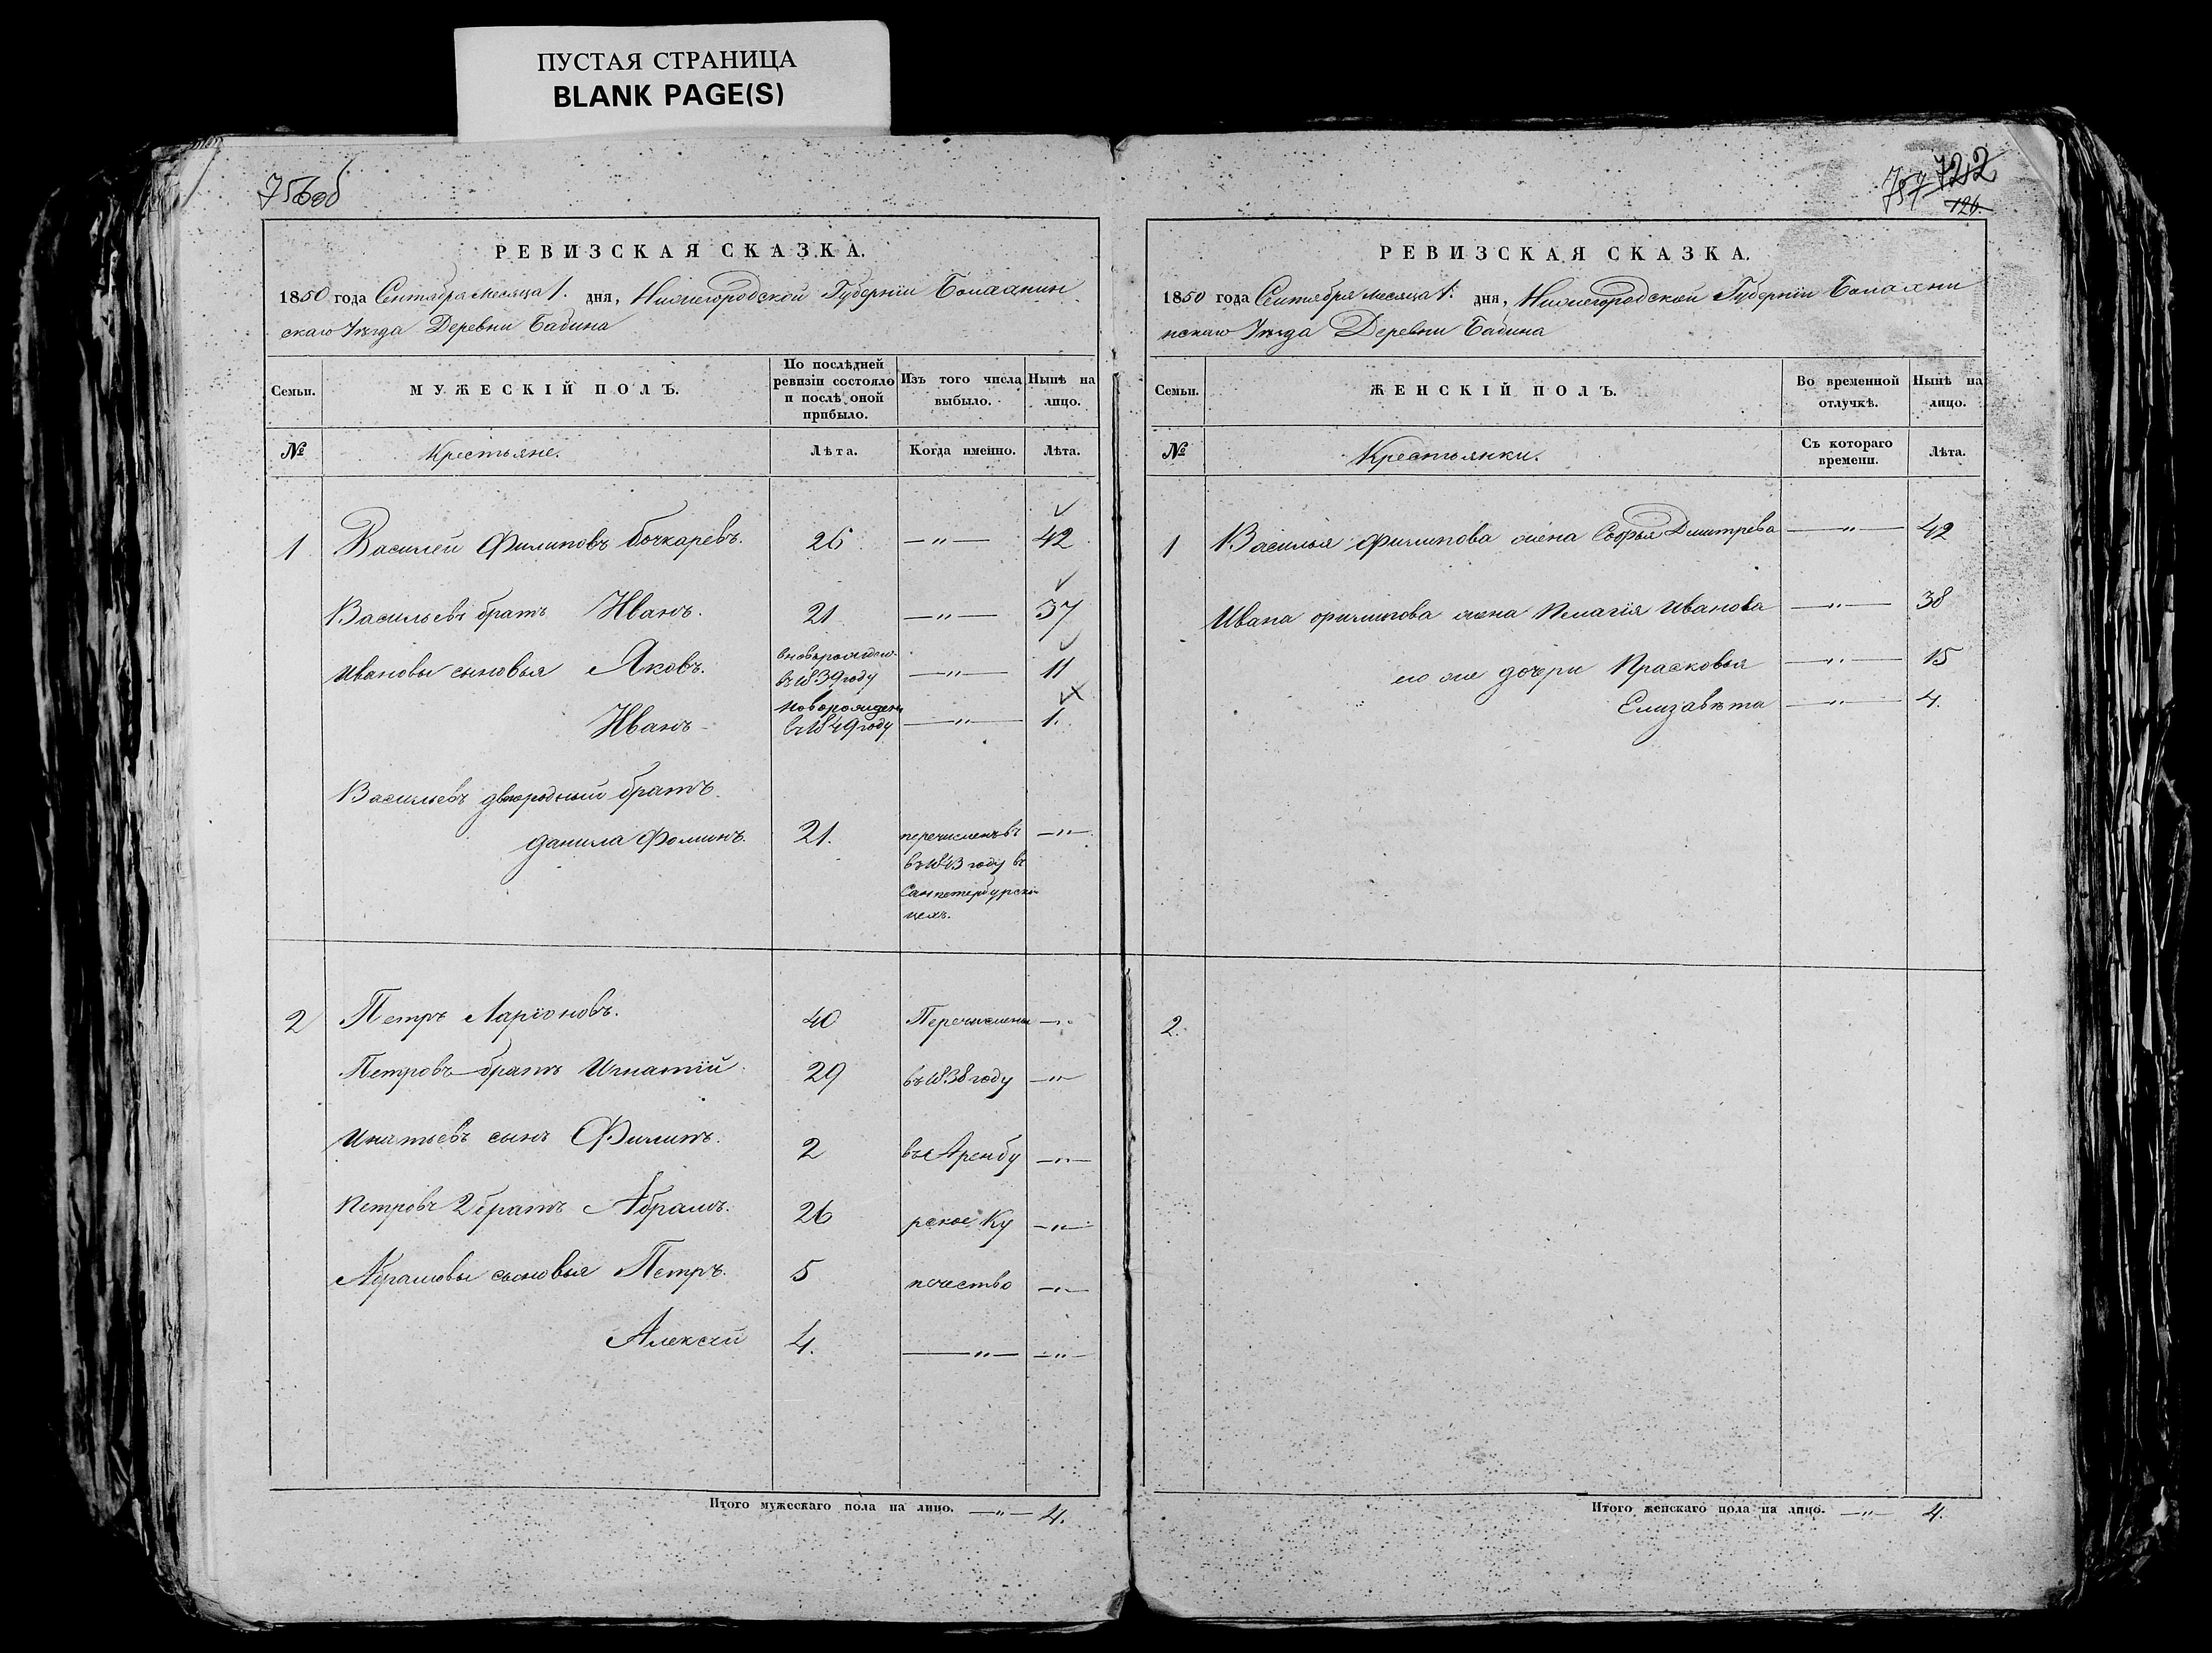 ПУСТАЯ СТРАНИЦА
BLANK PAGE(S)
756об
РЕВИЗСКАЯ СКАЗКА.
1850 года Сентября месяца 1. дня, Нижегородской Губернiи Балахнин
скаго Уѣзда Деревни Бабина
Семьи. МУЖЕСКІЙ ПОЛЪ. По послѣдней ревизіи состояло и послѣ оной прибыло. Изъ того числа выбыло. Нынѣ на лицо.
№ Крестьяне. Лѣта. Когда именно. Лѣта.
1 Василей Филиповъ Бочкаревъ. 26 —"— 42
Васильевъ братъ Иванъ. 21 —"— 37
Ивановы сыновья Яковъ. вновьрожден въ 1839 году —"— 11
Иванъ Новорожден въ 1849 году —"— 1.
Васильевъ двоюродный братъ
Данила Фоминъ. 21. перечисленъ въ —"—
въ 1843 году въ
Санкпетербурскiй
цехъ.
2 Петръ Ларiоновъ. 40 Перечислены —"—
Петровъ братъ Игнатiй 29 въ 1838 году —"—
Игнатьевъ сынъ Филипъ. 2 въ Аренбу —"—
Петровъ 2 братъ Абрамъ. 26 рское Ку —"—
Абрамовы сыновья Петръ. 5 печество —"—
Алексѣй 4. —"— —"—
Итого мужескаго пола на лицо. —"— 4.
757 722
126.
РЕВИЗСКАЯ СКАЗКА.
1850 года Сентября месяца 1. дня, Нижегородской Губернiи Балахни
нскаго Уѣзда Деревни Бабина
Семьи. ЖЕНСКІЙ ПОЛЪ. Во временной отлучкѣ. Нынѣ на лицо.
№ Крестьянки. Съ котораго времени. Лѣта.
1 Василья Филипова жена Софья Дмитрева —"— 42
Ивана Филипова жена Пелагiя Иванова —"— 38
его же дочери Прасковья —"— 15
Елизавѣта —"— 4.
2.
Итого женскаго пола на лицо. —"— 4.